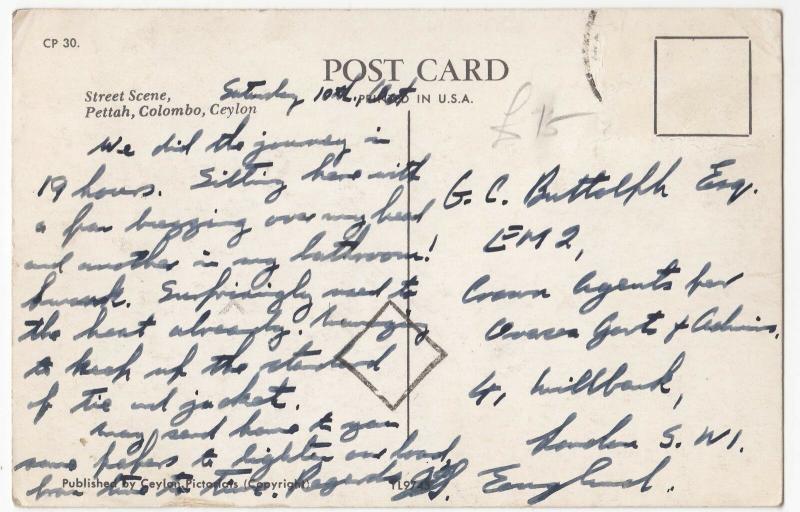 CP 30.
POST CARD
PRINTED IN U.S.A.
Street Scene,
Pettah, Colombo, Ceylon
Saturday 10th, Oct
£15
We did the journey in
19 hours. Sitting here with
a fan buzzing over my head
and another in my bathroom!
Swank. Surprisingly used to
the heat already. Managing
to keep up the standard
of tie and jacket.
May send home to you
some papers to lighten our load,
from time to time. Regards
G. C. Buttolph Esq.
EM2,
Crown Agents for
Oversea Govts & Admins,
4, Millbank,
London S.W.1.
England.
Published by Ceylon Pictorials (Copyright)